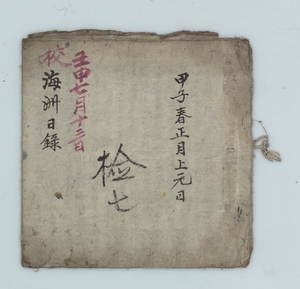 甲子春正月上元日
检七
壬申七月十三日
校海洲日錄